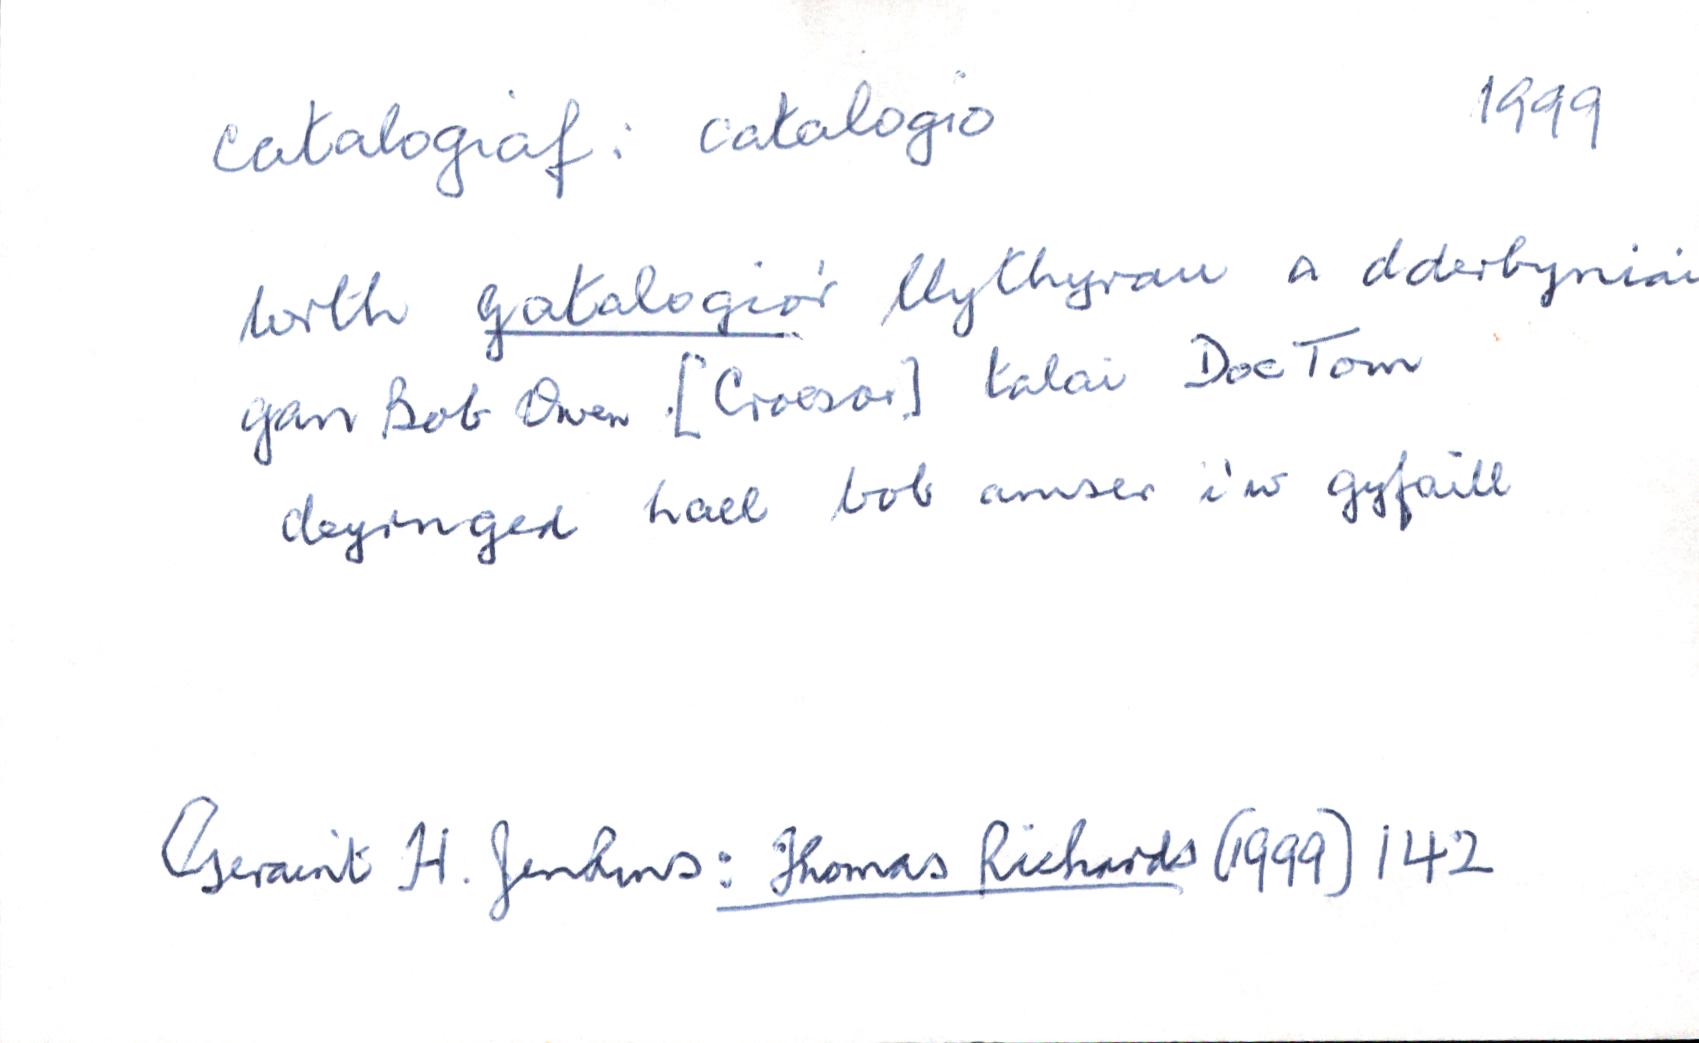 catalogiaf: catalogio 1999
wrth gatalogio'r llythyrau a dderbyniai
gan Bob Owen [Croesor] talai Doc Tom
deyrnged hael bob amser i'w gyfaill
Geraint H. Jenkins: Thomas Richards (1999) 142